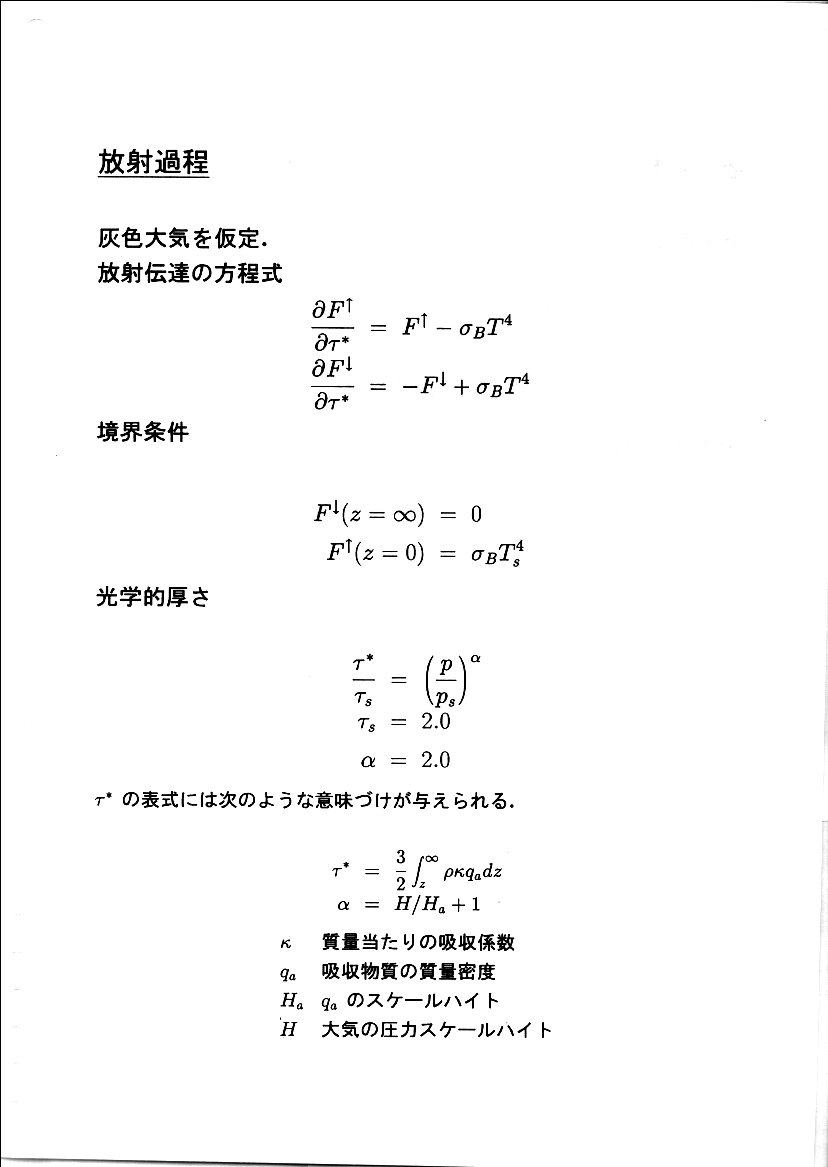 放射過程
灰色大気を仮定．
放射伝達の方程式
∂F↑/∂τ* = F↑ − σ_B T⁴
∂F↓/∂τ* = −F↓ + σ_B T⁴
境界条件
F↓(z = ∞) = 0
F↑(z = 0) = σ_B T_s⁴
光学的厚さ
τ*/τ_s = (p/p_s)^α
τ_s = 2.0
α = 2.0
τ* の表式には次のような意味づけが与えられる．
τ* = 3/2 ∫_z^∞ ρκq_a dz
α = H/H_a + 1
κ 質量当たりの吸収係数
q_a 吸収物質の質量密度
H_a q_a のスケールハイト
H 大気の圧力スケールハイト